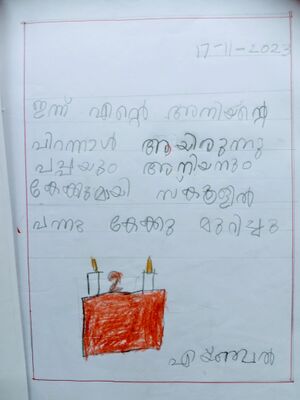 17-11-2023
ഇന്ന് എന്റെ അനിയന്റെ
പിറന്നാൾ ആയിരുന്നു
പപ്പയും അനിയനും
കേക്കുമായി സ്കൂളിൽ
വന്നു കേക്കു മുറിച്ചു
2